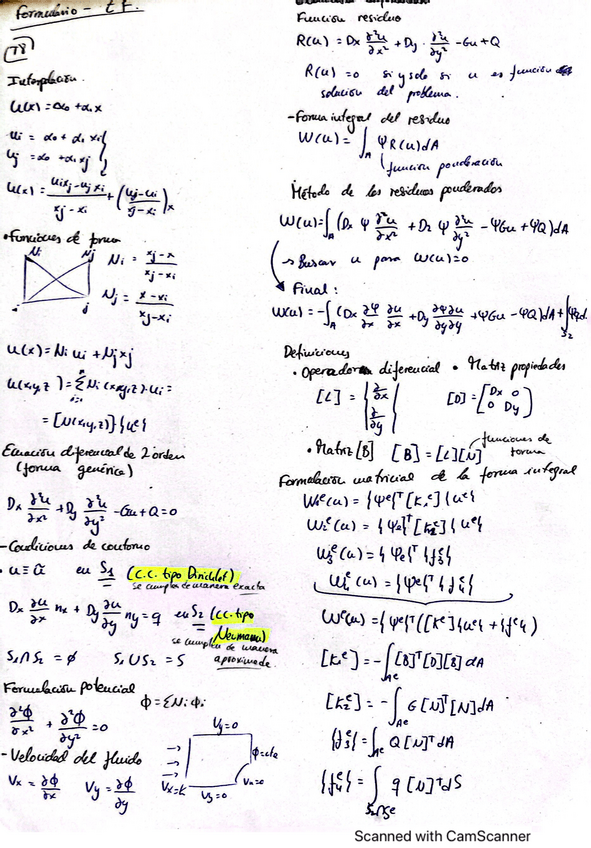 Formulario - t F.
T8
Interpolación.
u(x) = α₀ + α₁x
ui = α₀ + α₁ xi
uj = α₀ + α₁ xj
u(x) = (ui xj - uj xi)/(xj - xi) + ((uj - ui)/(xj - xi)) x
• Funciones de forma
Ni Nj
Ni = (xj - x)/(xj - xi)
i j
Nj = (x - xi)/(xj - xi)
u(x) = Ni ui + Nj xj
u(x,y,z) = Σ Ni(x,y,z)·ui =
= [N(x,y,z)]{uᵉ}
Ecuación diferencial de 2 orden
(forma genérica)
Dx ∂²u/∂x² + Dy ∂²u/∂y² - Gu + Q = 0
- Condiciones de contorno
• u = ũ en S1 (C.C. tipo Dirichlet)
se cumple de manera exacta
Dx ∂u/∂x nx + Dy ∂u/∂y ny = q en S2 (CC. tipo
Neumann)
se cumplen de manera
aproximada
S1 ∩ S2 = ∅ S1 ∪ S2 = S
Formulación potencial
ϕ = ΣNi ϕi
∂²ϕ/∂x² + ∂²ϕ/∂y² = 0
- Velocidad del fluido
Vx = ∂ϕ/∂x Vy = ∂ϕ/∂y
Vy = 0
ϕ = cte
Vx = K
Vn = 0
Vy = 0
Función residuo
R(u) = Dx ∂²u/∂x² + Dy · ∂²u/∂y² - Gu + Q
R(u) = 0 si y solo si u es función
solución del problema.
- Forma integral del residuo
W(u) = ∫A Ψ R(u) dA
función ponderación
Método de los residuos ponderados
W(u) = ∫A (Dx Ψ ∂²u/∂x² + Dy Ψ ∂²u/∂y² - ΨGu + ΨQ) dA
→ Buscar u para W(u) = 0
Final:
W(u) = -∫A (Dx ∂Ψ/∂x ∂u/∂x + Dy ∂Ψ/∂y ∂u/∂y + ΨGu - ΨQ) dA + ∫S2 Ψq d
Definiciones
• Operador diferencial • Matriz propiedades
[L] = {∂/∂x ∂/∂y} [D] = [Dx 0 0 Dy]
• Matriz [B] [B] = [L][N]
funciones de
forma
Formulación matricial de la forma integral
W₁ᵉ(u) = {Ψᵉ}ᵀ [K₁ᵉ] {uᵉ}
W₂ᵉ(u) = {Ψᵉ}ᵀ [K₂ᵉ] {uᵉ}
W₃ᵉ(u) = {Ψᵉ}ᵀ {f₃ᵉ}
W₄ᵉ(u) = {Ψᵉ}ᵀ {f₄ᵉ}
Wᵉ(u) = {Ψᵉ}ᵀ ([Kᵉ]{uᵉ} + {fᵉ})
[K₁ᵉ] = -∫Aᵉ [B]ᵀ[D][B] dA
[K₂ᵉ] = -∫Aᵉ G [N]ᵀ[N] dA
{f₃ᵉ} = ∫Aᵉ Q [N]ᵀ dA
{f₄ᵉ} = ∫S₂∩Sᵉ q [N]ᵀ dS
Scanned with CamScanner